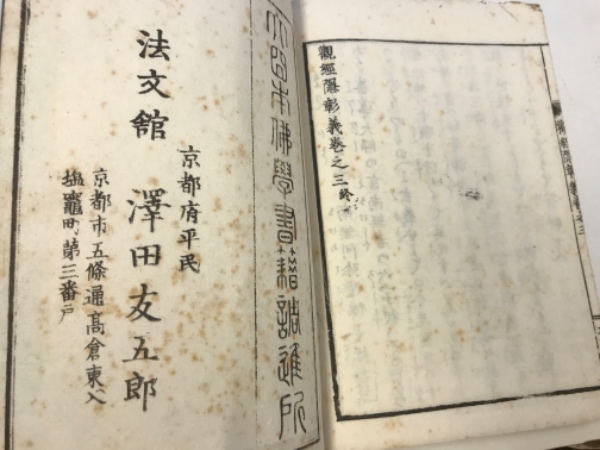 觀經隱彰義卷之三終
大日本佛學書籍調進所
京都府平民
法文館 澤田友五郎
京都市五條通高倉東入
塩竈町第三番戸